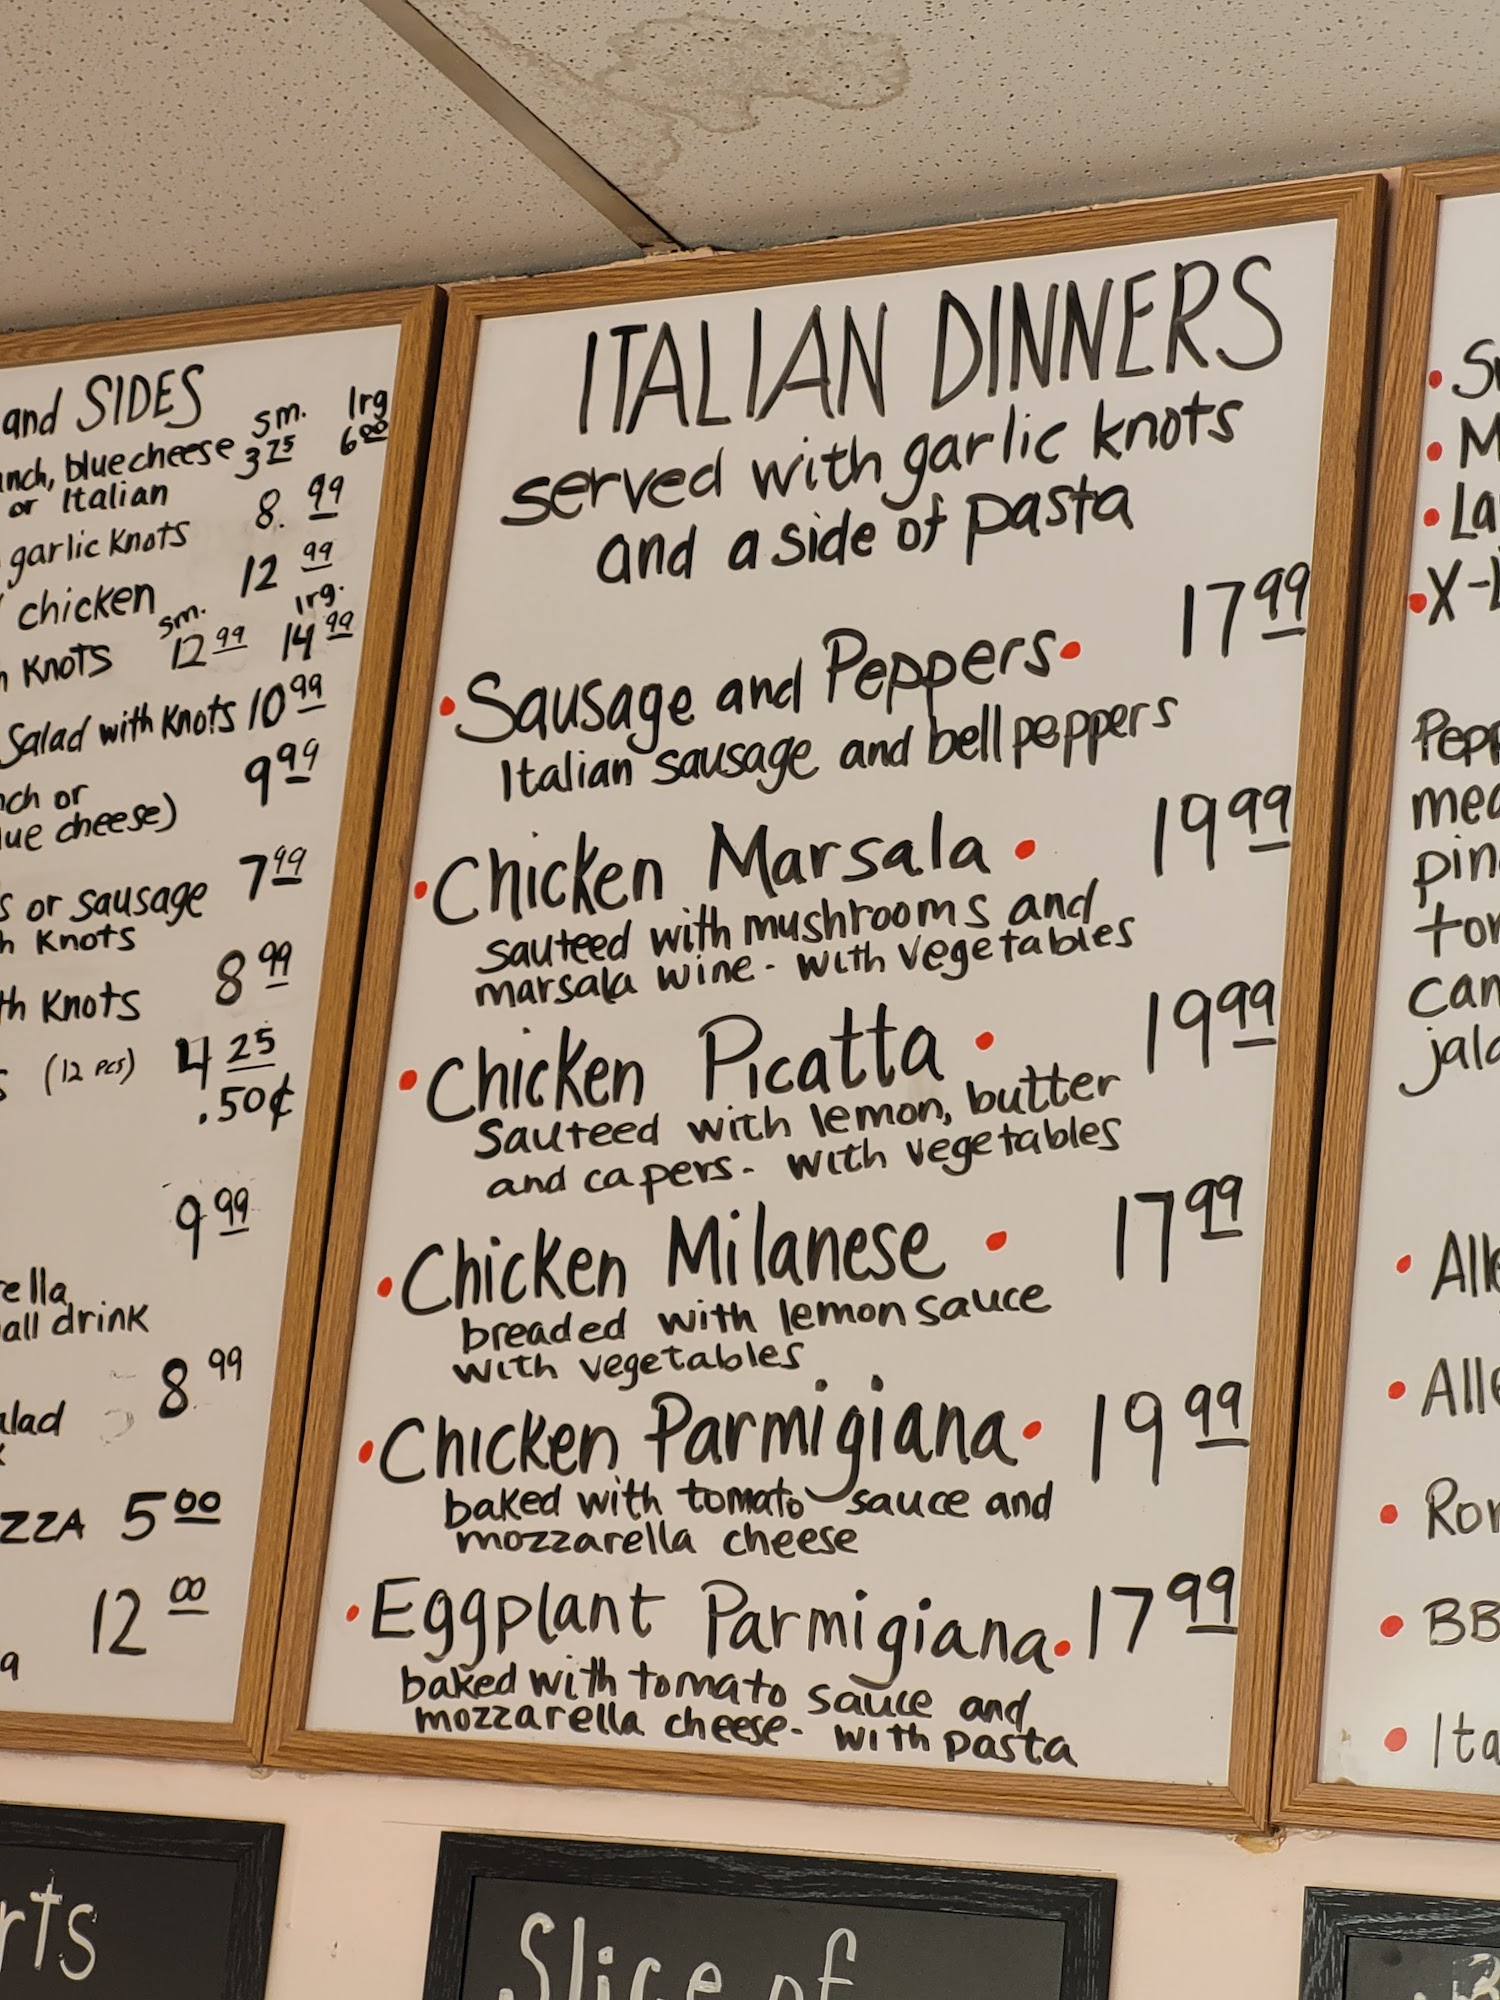 and SIDES
sm. lrg
nch, bluecheese 3 25 6 00
or Italian
garlic knots 8. 99
chicken 12 99
sm. lrg.
knots 12 99 14 99
Salad with knots 10 99
nch or 9 99
ue cheese)
s or sausage 7 99
h knots
th knots 8 99
s (12 pcs) 4 25
.50¢
9 99
ella
all drink
8 99
alad
ZZA 5 00
12 00
ITALIAN DINNERS
served with garlic knots
and a side of pasta
• Sausage and Peppers • 17 99
Italian sausage and bell peppers
• Chicken Marsala • 19 99
sauteed with mushrooms and
marsala wine - with vegetables
• Chicken Picatta • 19 99
Sauteed with lemon, butter
and capers - with vegetables
• Chicken Milanese • 17 99
breaded with lemon sauce
with vegetables
• Chicken Parmigiana • 19 99
baked with tomato sauce and
mozzarella cheese
• Eggplant Parmigiana • 17 99
baked with tomato sauce and
mozzarella cheese - with pasta
• M
• La
• X-
Pepp
mea
pin
can
jala
• All
• All
• BB
• Ita
rts
Slice of